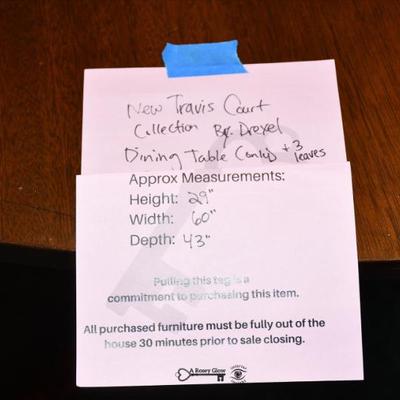 New Travis Court
Collection By: Drexel
Dining Table (only) + 3 leaves
Approx Measurements:
Height: 29"
Width: 60"
Depth: 43"
Pulling this tag is a
commitment to purchasing this item.
All purchased furniture must be fully out of the
house 30 minutes prior to sale closing.
A Rosey Glow